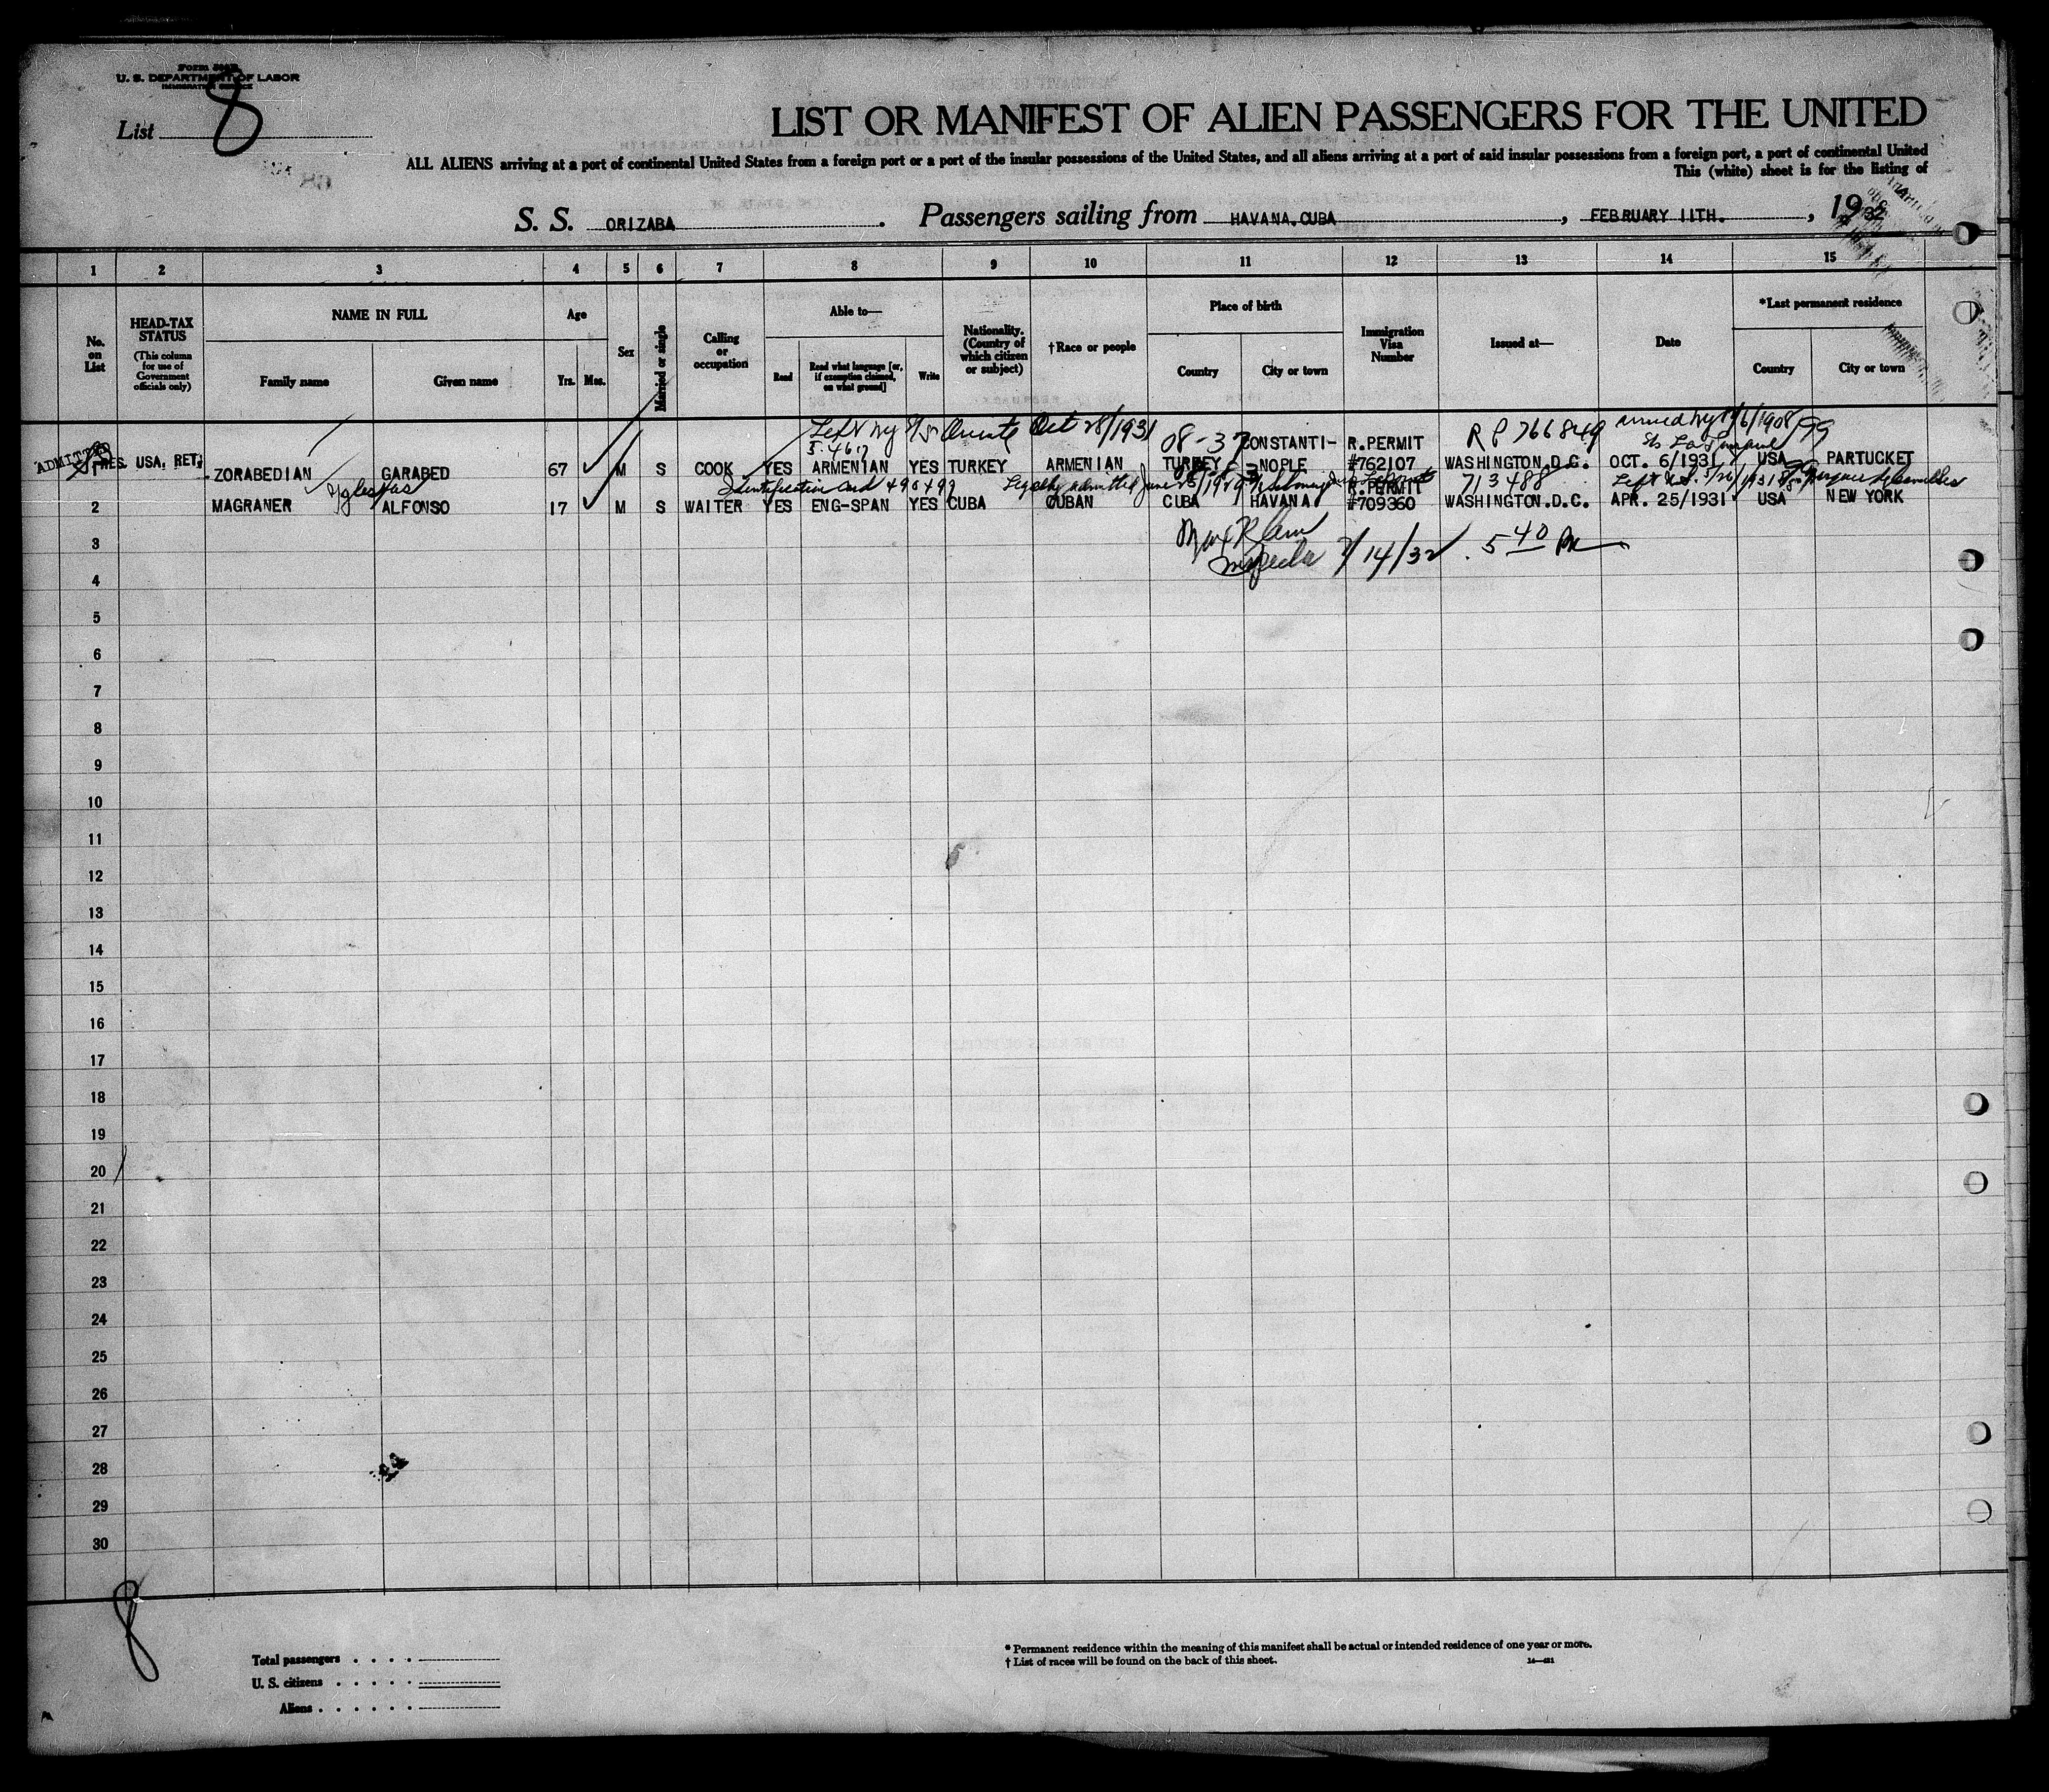 U. S. DEPARTMENT OF LABOR
List 8
LIST OR MANIFEST OF ALIEN PASSENGERS FOR THE UNITED
ALL ALIENS arriving at a port of continental United States from a foreign port or a port of the insular possessions of the United States, and all aliens arriving at a port of said insular possessions from a foreign port, a port of continental United
This (white) sheet is for the listing of
S. S. ORIZABA. Passengers sailing from HAVANA, CUBA, FEBRUARY 11TH., 1932
1 2 3 4 5 6 7 8 9 10 11 12 13 14 15
No. on List
HEAD-TAX STATUS (This column for use of Government officials only)
NAME IN FULL
Family name Given name
Age
Yrs. Mos.
Sex
Married or single
Calling or occupation
Able to—
Read Read what language [or, if exemption claimed, on what ground] Write
Nationality. (Country of which citizen or subject)
†Race or people
Place of birth
Country City or town
Immigration Visa Number
Issued at—
Date
*Last permanent residence
Country City or town
Left NY S/S Oriente Oct 28/1931 RP 766849
08-37 CONSTANTI- R.PERMIT
ADMITTED
1 RES. USA. RET. ZORABEDIAN GARABED 67 M S COOK YES ARMENIAN YES TURKEY ARMENIAN TURKEY NOPLE #762107 WASHINGTON.D.C. OCT. 6/1931 USA PARTUCKET
Iglesias Identification card Legally admitted June 713488
R.PERMIT
2 MAGRANER ALFONSO 17 M S WAITER YES ENG-SPAN YES CUBA CUBAN CUBA HAVANA #709360 WASHINGTON.D.C. APR. 25/1931 USA NEW YORK
3
2/14/32 5 40 PM
4
5
6
7
8
9
10
11
12
13
14
15
16
17
18
19
20
21
22
23
24
25
26
27
28
29
30
8
Total passengers
U. S. citizens
Aliens
* Permanent residence within the meaning of this manifest shall be actual or intended residence of one year or more.
† List of races will be found on the back of this sheet.